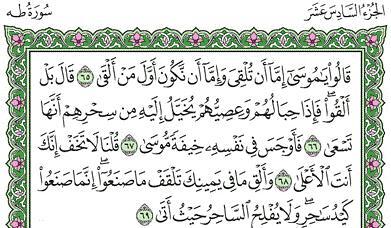 الجزء السادس عشر
سورة طه
قَالُوا۟ يَـٰمُوسَىٰٓ إِمَّآ أَن تُلْقِىَ وَإِمَّآ أَن نَّكُونَ أَوَّلَ مَنْ أَلْقَىٰ ٦٥ قَالَ بَلْ
أَلْقُوا۟ ۖ فَإِذَا حِبَالُهُمْ وَعِصِيُّهُمْ يُخَيَّلُ إِلَيْهِ مِن سِحْرِهِمْ أَنَّهَا
تَسْعَىٰ ٦٦ فَأَوْجَسَ فِى نَفْسِهِۦ خِيفَةً مُّوسَىٰ ٦٧ قُلْنَا لَا تَخَفْ إِنَّكَ
أَنتَ ٱلْأَعْلَىٰ ٦٨ وَأَلْقِ مَا فِى يَمِينِكَ تَلْقَفْ مَا صَنَعُوٓا۟ ۖ إِنَّمَا صَنَعُوا۟
كَيْدُ سَـٰحِرٍ ۖ وَلَا يُفْلِحُ ٱلسَّاحِرُ حَيْثُ أَتَىٰ ٦٩